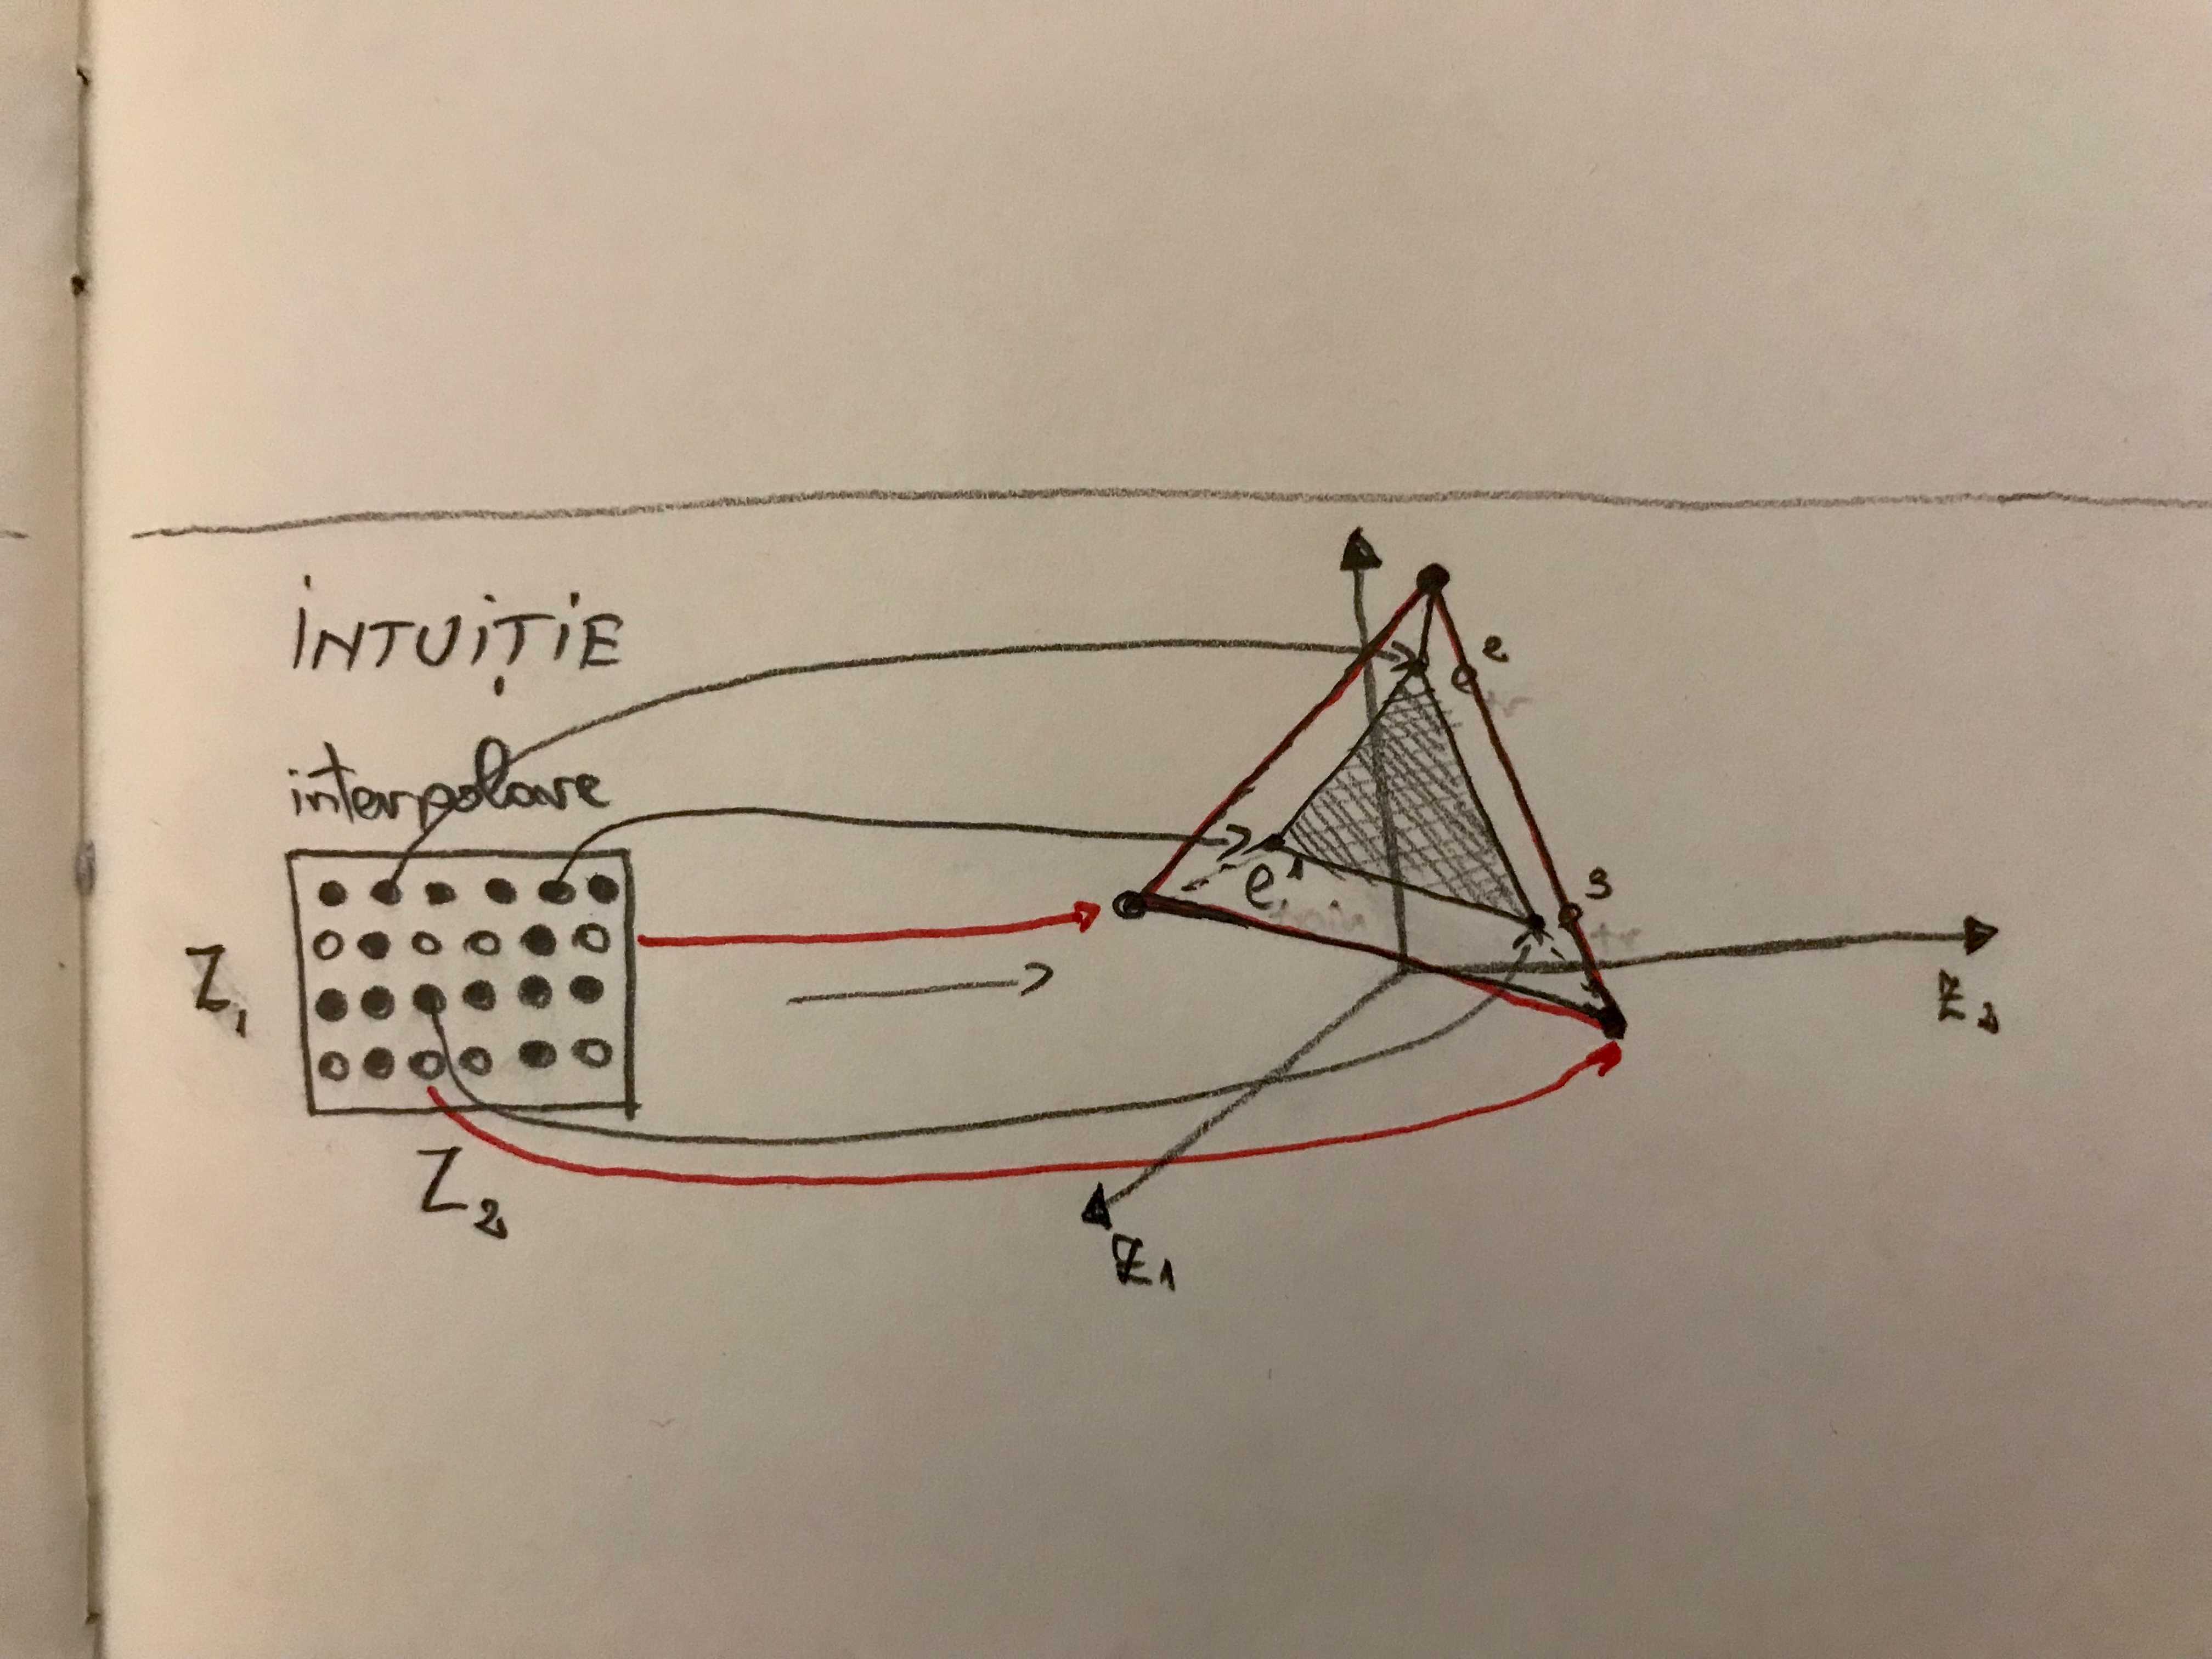 INTUIȚIE
interpolare
Z₁
Z₂
e
e¹
s
z₂
z₁